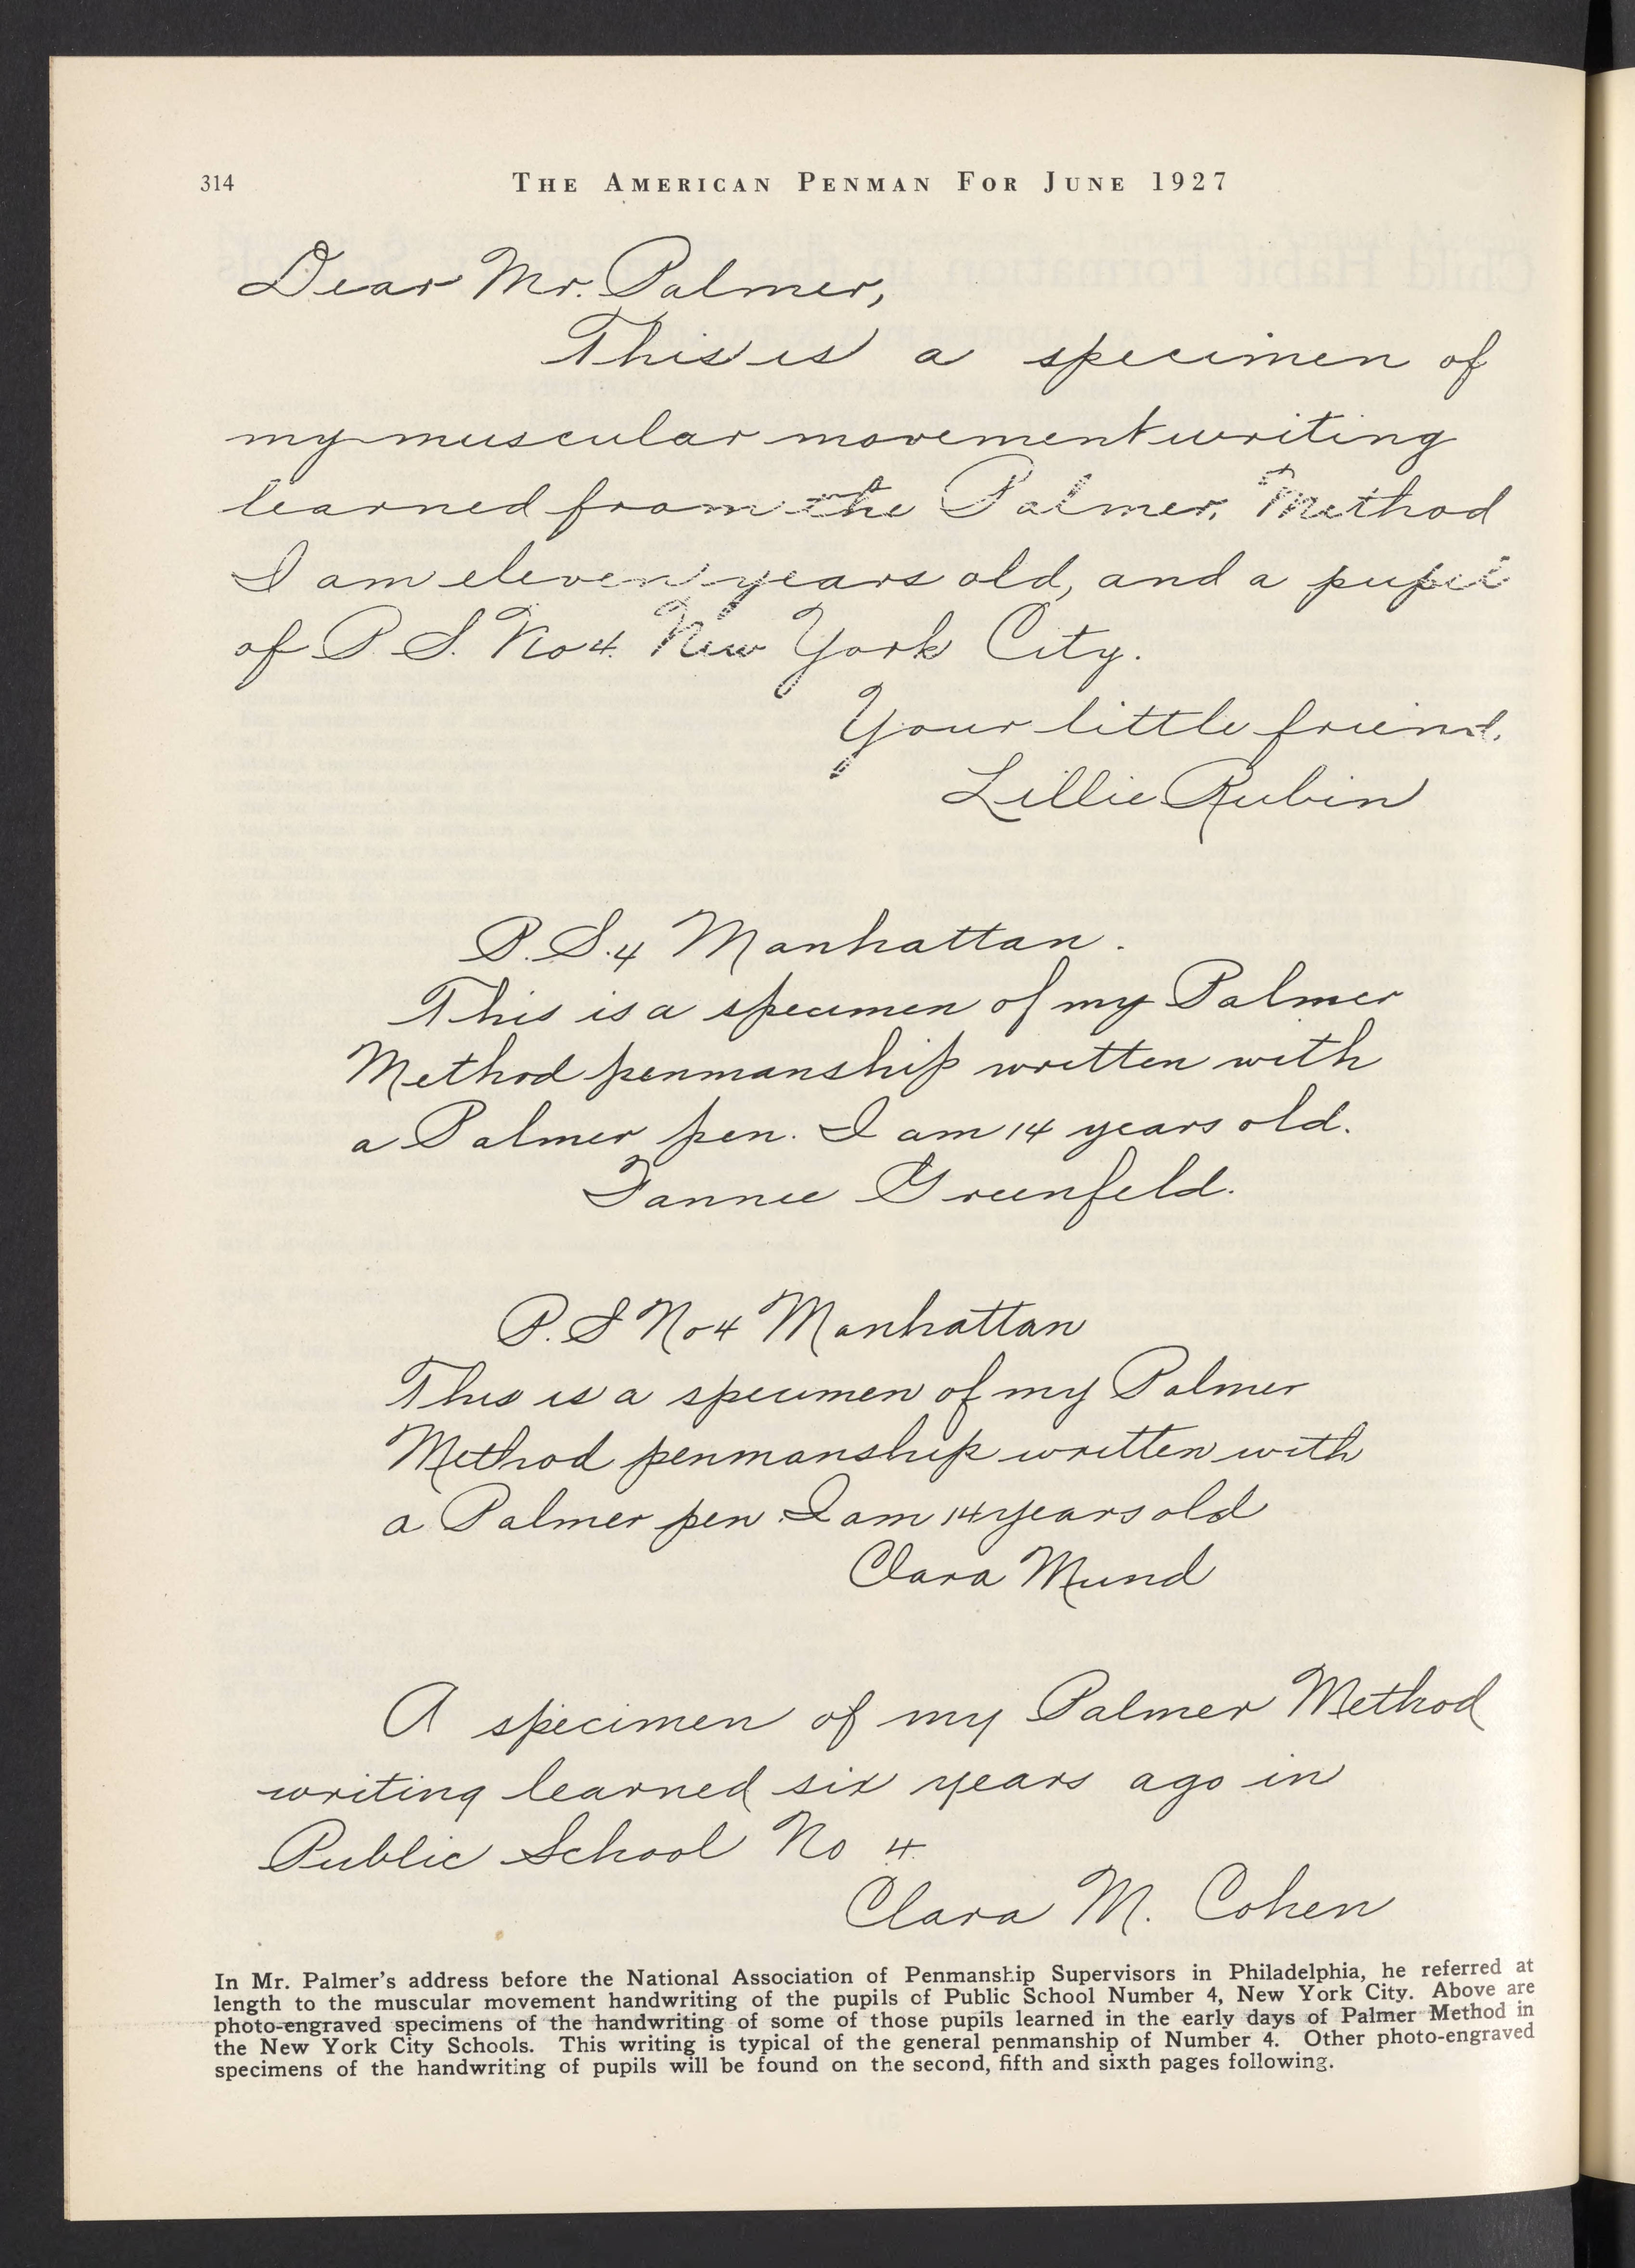 314
THE AMERICAN PENMAN FOR JUNE 1927
Dear Mr. Palmer,
This is a specimen of
my muscular movement writing
learned from the Palmer, Method
I am eleven years old, and a pupil
of P. S. No 4. New York City.
Your little friend,
Lillie Rubin
P. S. 4 Manhattan.
This is a specimen of my Palmer
Method penmanship written with
a Palmer pen. I am 14 years old.
Fannie Greenfeld.
P. S No 4 Manhattan
This is a specimen of my Palmer
Method penmanship written with
a Palmer pen. I am 14 years old
Clara Mund
A specimen of my Palmer Method
writing learned six years ago in
Public School No 4.
Clara M. Cohen
In Mr. Palmer's address before the National Association of Penmanship Supervisors in Philadelphia, he referred at
length to the muscular movement handwriting of the pupils of Public School Number 4, New York City. Above are
photo-engraved specimens of the handwriting of some of those pupils learned in the early days of Palmer Method in
the New York City Schools. This writing is typical of the general penmanship of Number 4. Other photo-engraved
specimens of the handwriting of pupils will be found on the second, fifth and sixth pages following.